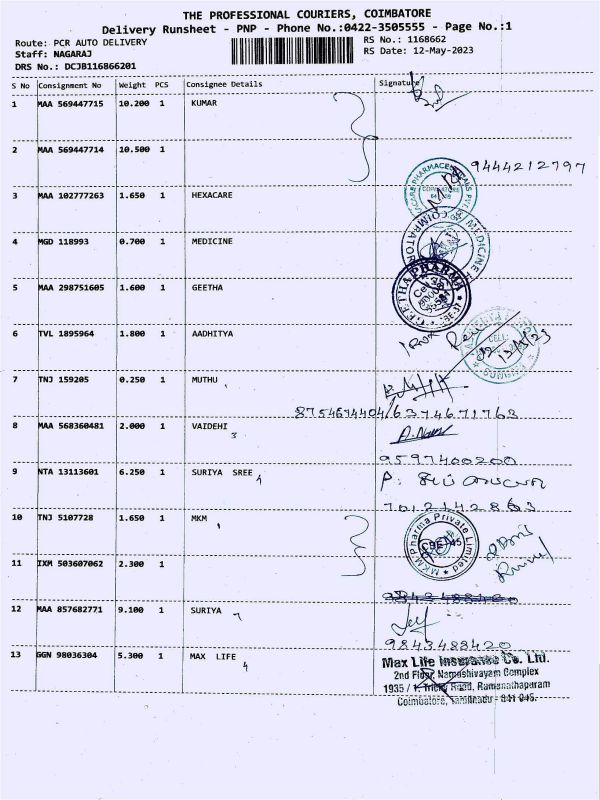 THE PROFESSIONAL COURIERS, COIMBATORE
Delivery Runsheet - PNP - Phone No.:0422-3505555 - Page No.:1
Route: PCR AUTO DELIVERY
Staff: NAGARAJ
DRS No.: DCJB116866201
RS No.: 1168662
RS Date: 12-May-2023
S No Consignment No Weight PCS Consignee Details Signature
1 MAA 569447715 10.200 1 KUMAR
2 MAA 569447714 10.500 1
9444212797
3 MAA 102777263 1.650 1 HEXACARE
4 MGD 118993 0.700 1 MEDICINE
5 MAA 298751605 1.600 1 GEETHA
GEETHA PHARMA
6 TVL 1895964 1.800 1 AADHITYA
7 TNJ 159205 0.250 1 MUTHU
8754674404/6374671763
8 MAA 568360481 2.000 1 VAIDEHI 3
9597400200
9 NTA 13113601 6.250 1 SURIYA SREE 4
7012142863
10 TNJ 5107728 1.650 1 MKM 1
MKM Pharma Private Limited
11 IXM 503607062 2.300 1
12 MAA 857682771 9.100 1 SURIYA 7
9843488420
13 GGN 98036304 5.300 1 MAX LIFE 4
Max Life Insurance Co. Ltd.
2nd Floor, Namashivayam Complex
1935 / 1, Trichy Road, Ramanathapuram
Coimbatore, Tamilnadu - 641 045.